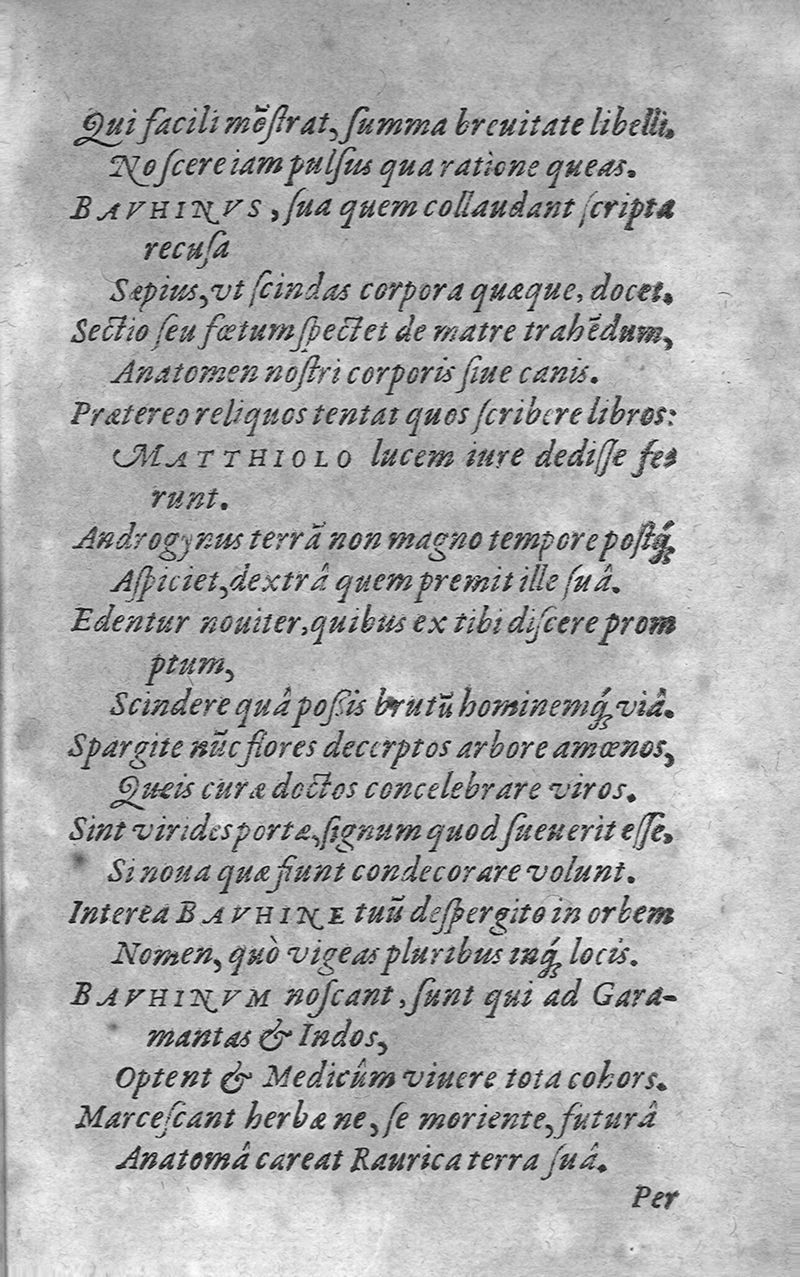 Qui facili mõſtrat, ſumma breuitate libelli,
Noſcere iam pulſus qua ratione queas.
BAVHINVS, ſua quem collaudant ſcripta
recuſa
Sæpius, vt ſcindas corpora quæque, docet,
Sectio ſeu fœtum ſpectet de matre trahẽdum,
Anatomen noſtri corporis ſiue canis.
Prætereo reliquos tentat quos ſcribere libros:
MATTHIOLO lucem iure dediſſe fe-
runt.
Androgynus terrã non magno tempore poſtq́;
Aſpiciet, dextrâ quem premit ille ſuâ.
Edentur nouiter, quibus ex tibi diſcere prom
ptum,
Scindere quâ poſſis brutũ hominemq́; viâ.
Spargite nũc flores decerptos arbore amœnos,
Queis curæ doctos concelebrare viros.
Sint virides portæ, ſignum quod ſueuerit eſſe,
Si noua quæ fiunt condecorare volunt.
Interea BAVHINE tuũ deſpergito in orbem
Nomen, quò vigeas pluribus inq́; locis.
BAVHINVM noſcant, ſunt qui ad Gara-
mantas & Indos,
Optent & Medicûm viuere tota cohors.
Marceſcant herbæ ne, ſe moriente, futurâ
Anatomâ careat Raurica terra ſuâ.
Per